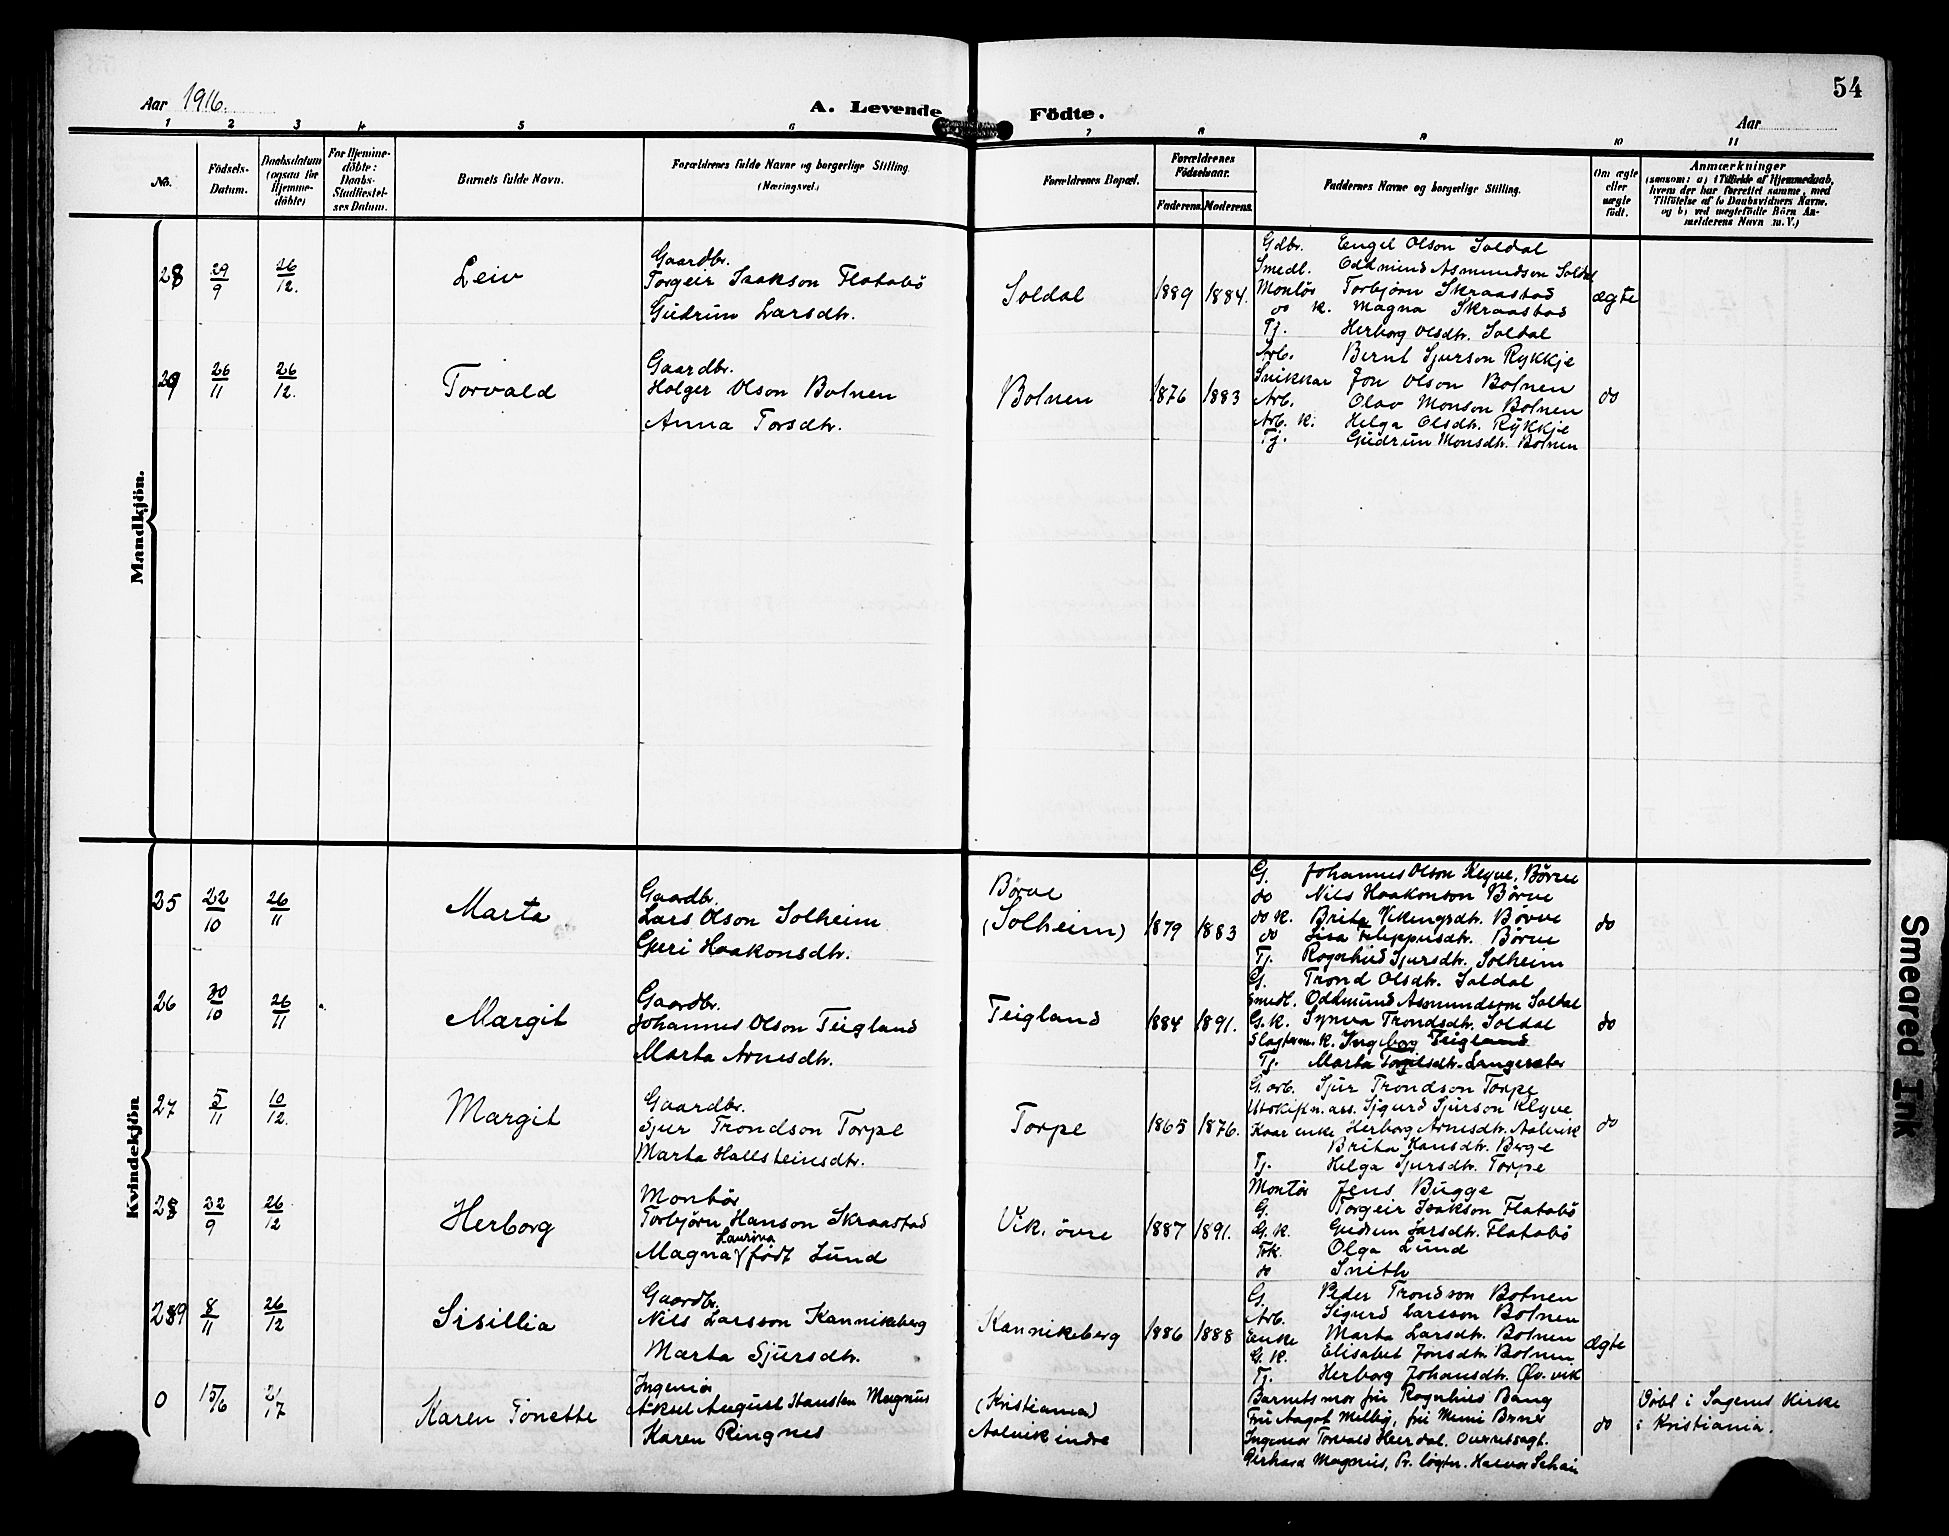 54
Aar 1916. A. Levende Födte. Aar
1 2 3 4 5 6 7 8 9 10 11
No. Födsels-Datum. Daabsdatum (ogsaa for Hjemme-döbte) For Hjemme-döbte: Daabs-Stadfæstel-ses Datum. Barnets fulde Navn. Forældrenes fulde Navne og borgerlige Stilling. (Næringsvei.) Forældrenes Bopæl. Forældrenes Födselsaar. Faderens. Moderens. Faddernes Navne og borgerlige Stilling. Om ægte eller uægte födt. Anmærkninger (saasom: a) i Tilfælde af Hjemmedaab, hvem der har forrettet samme, med Tilföielse af to Daabsvidners Navne, og b) ved uægtefödte Börn An-melderens Navn m. V.)
Mandkjön.
28 29/9 26/12. Leiv
Gaardbr.
Torgeir Isakson Flatabö
Gudrun Larsdtr.
Soldal 1889 1884.
Gdbr. Engel Olson Soldal
Smedl. Oddmund Asmundson Soldal
Montör Torbjørn Skraastad
do K. Magna Skraastad
Tj. Herborg Olsdtr. Soldal
ægte
29 26/11 26/12. Torvald
Gaardbr.
Holger Olson Botnen
Anna Torsdtr.
Botnen 1876 1883
Arb. Bernt Sjurson Rykkje
Snikkar Jon Olson Botnen
Arb. Olav Monson Botnen
Arb. K. Helga Olsdtr. Rykkje
Tj. Gudrun Monsdtr. Botnen
do
Kvindekjön
25 22/10 26/11 Marta
Gaardbr.
Lars Olson Solheim
Guri Haakonsdtr.
Børve
(Solheim) 1879 1883
G. Johannes Olson Klyve, Børve
do Nils Haakonson Børve
do K. Brita Vikingsdtr. Børve
do Lisa Filippusdtr. Børve
Tj. Ragnhild Sjursdtr. Solheim
do
26 30/10 26/11 Margit
Gaardbr.
Johannes Olson Teigland
Marta Arnesdtr.
Teigland 1884 1891.
G. Trond Olsdtr. Soldal
Smedl. Oddmund Asmundson Soldal
G. K. Synva Trondsdtr. Soldal
Slagterm. K. Ingeborg Teigland
Tj. Marta Torgilsdtr. Langesæter
do
27 5/11 10/12. Margit
Gaardbr.
Sjur Trondson Torpe
Marta Hallsteinsdtr.
Torpe 1865 1876.
G. arb. Sjur Trondson Torpe
Sigurd Sjurson Klyve
Kaarenke Herborg Arnesdtr. Aalvik
Brita Hansdtr. Berge
Tj. Helga Sjursdtr. Torpe
do
28 22/9 26/12 Herborg
Montör
Torbjørn Hanson Skraastad
Laurina
Magna født Lund
Vik, övre 1887 1891.
Montør Jens Bugge
G. Torgeir Isakson Flatabö
G. K. Gudrun Larsdtr. Flatabö
Frk. Olga Lund
do Smith
29 8/11 26/12 Sisillia
Gaardbr.
Nils Larsson Kannikeberg
Marta Sjursdtr.
Kannikeberg 1886 1888
G. Peder Trondson Botnen
Arb. Sigurd Larsson Botnen
Enke Marta Larsdtr. Botnen
G. K. Elisabet Jonsdtr. Botnen
Tj. Herborg Johansdtr. Øv. vik
ægte
0 15/6 2/7 Karen Tonette
Ingeniør
Aksel August Hansten Magnus
Karen Ringnes
(Kristiania)
Aalvik indre
Barnets mor fru Ragnhild Bang
Fru Aagot Melbÿ, fru Mimi
Ingeniør Torvald Heirdal. Overretssagf.
Gerhard Magnus, Pr. løytn. Halvor Schou
do
Döbt i Sagenes Kirke
i Kristiania.
Smeared Ink